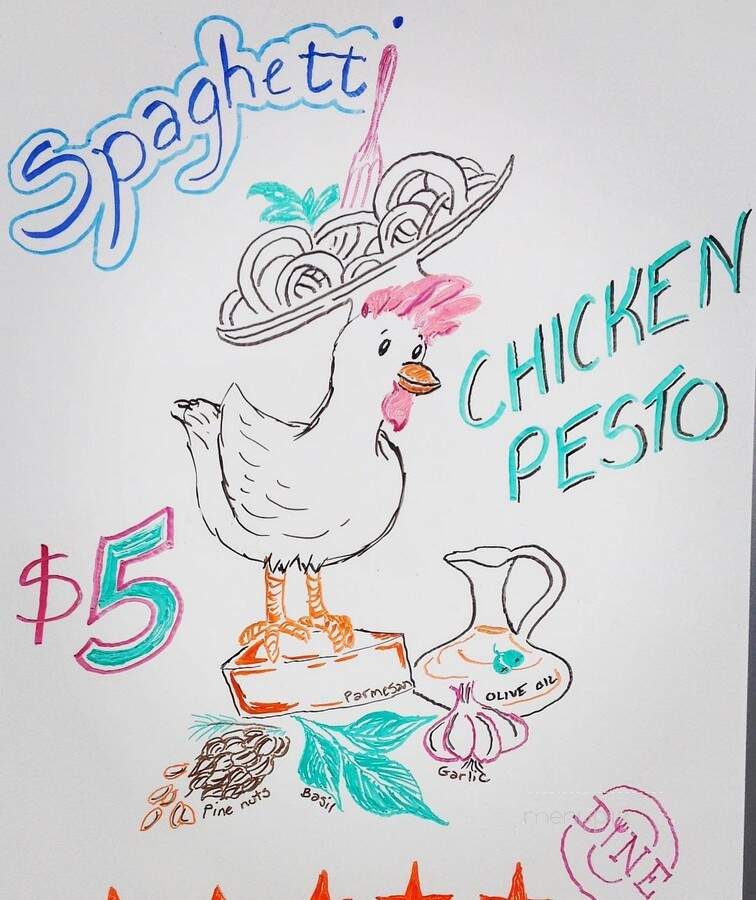 Spaghetti
CHICKEN
PESTO
$5
Parmesan
OLIVE OIL
Garlic
Pine nuts
Basil
DINE